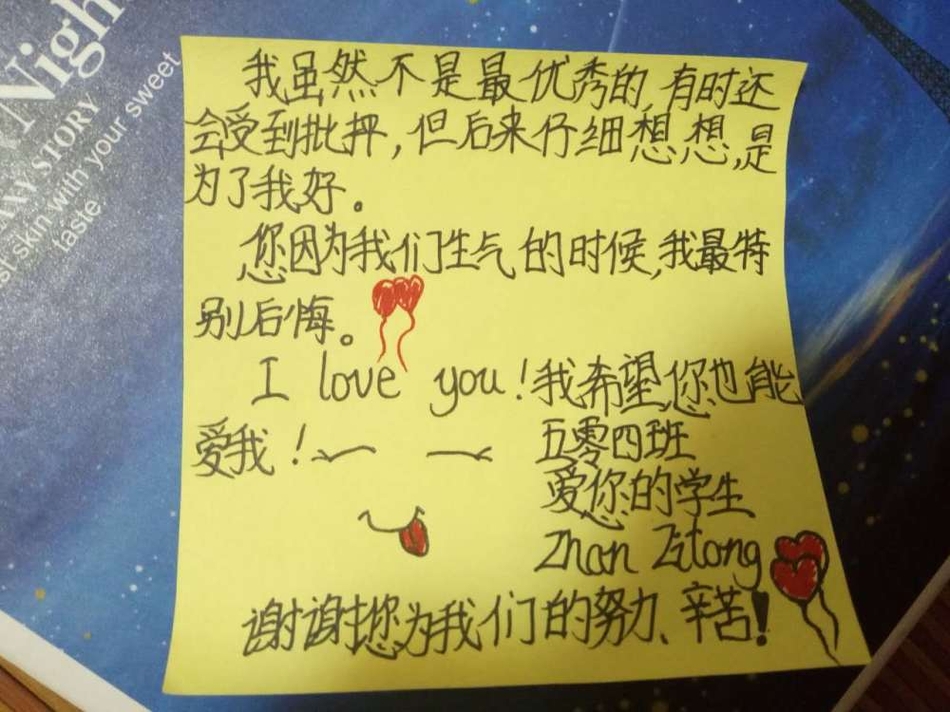 Nigh
ANY STORY
skin with your sweet
taste
我虽然不是最优秀的,有时还
会受到批评,但后来仔细想想,是
为了我好。
您因为我们生气的时候,我最特
别后悔。
I love you!我希望您也能
爱我!
五零四班
爱您的学生
Zhan Zitong
谢谢您为我们的努力、辛苦!